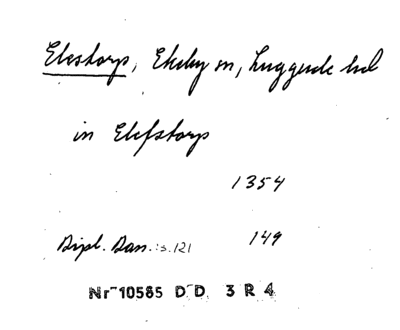 Elestorp, Ekeby sn, Luggude hd
in Elefstorp
1354
Dipl. Dan. : s. 121 149
Nr 10585 D D 3 R 4